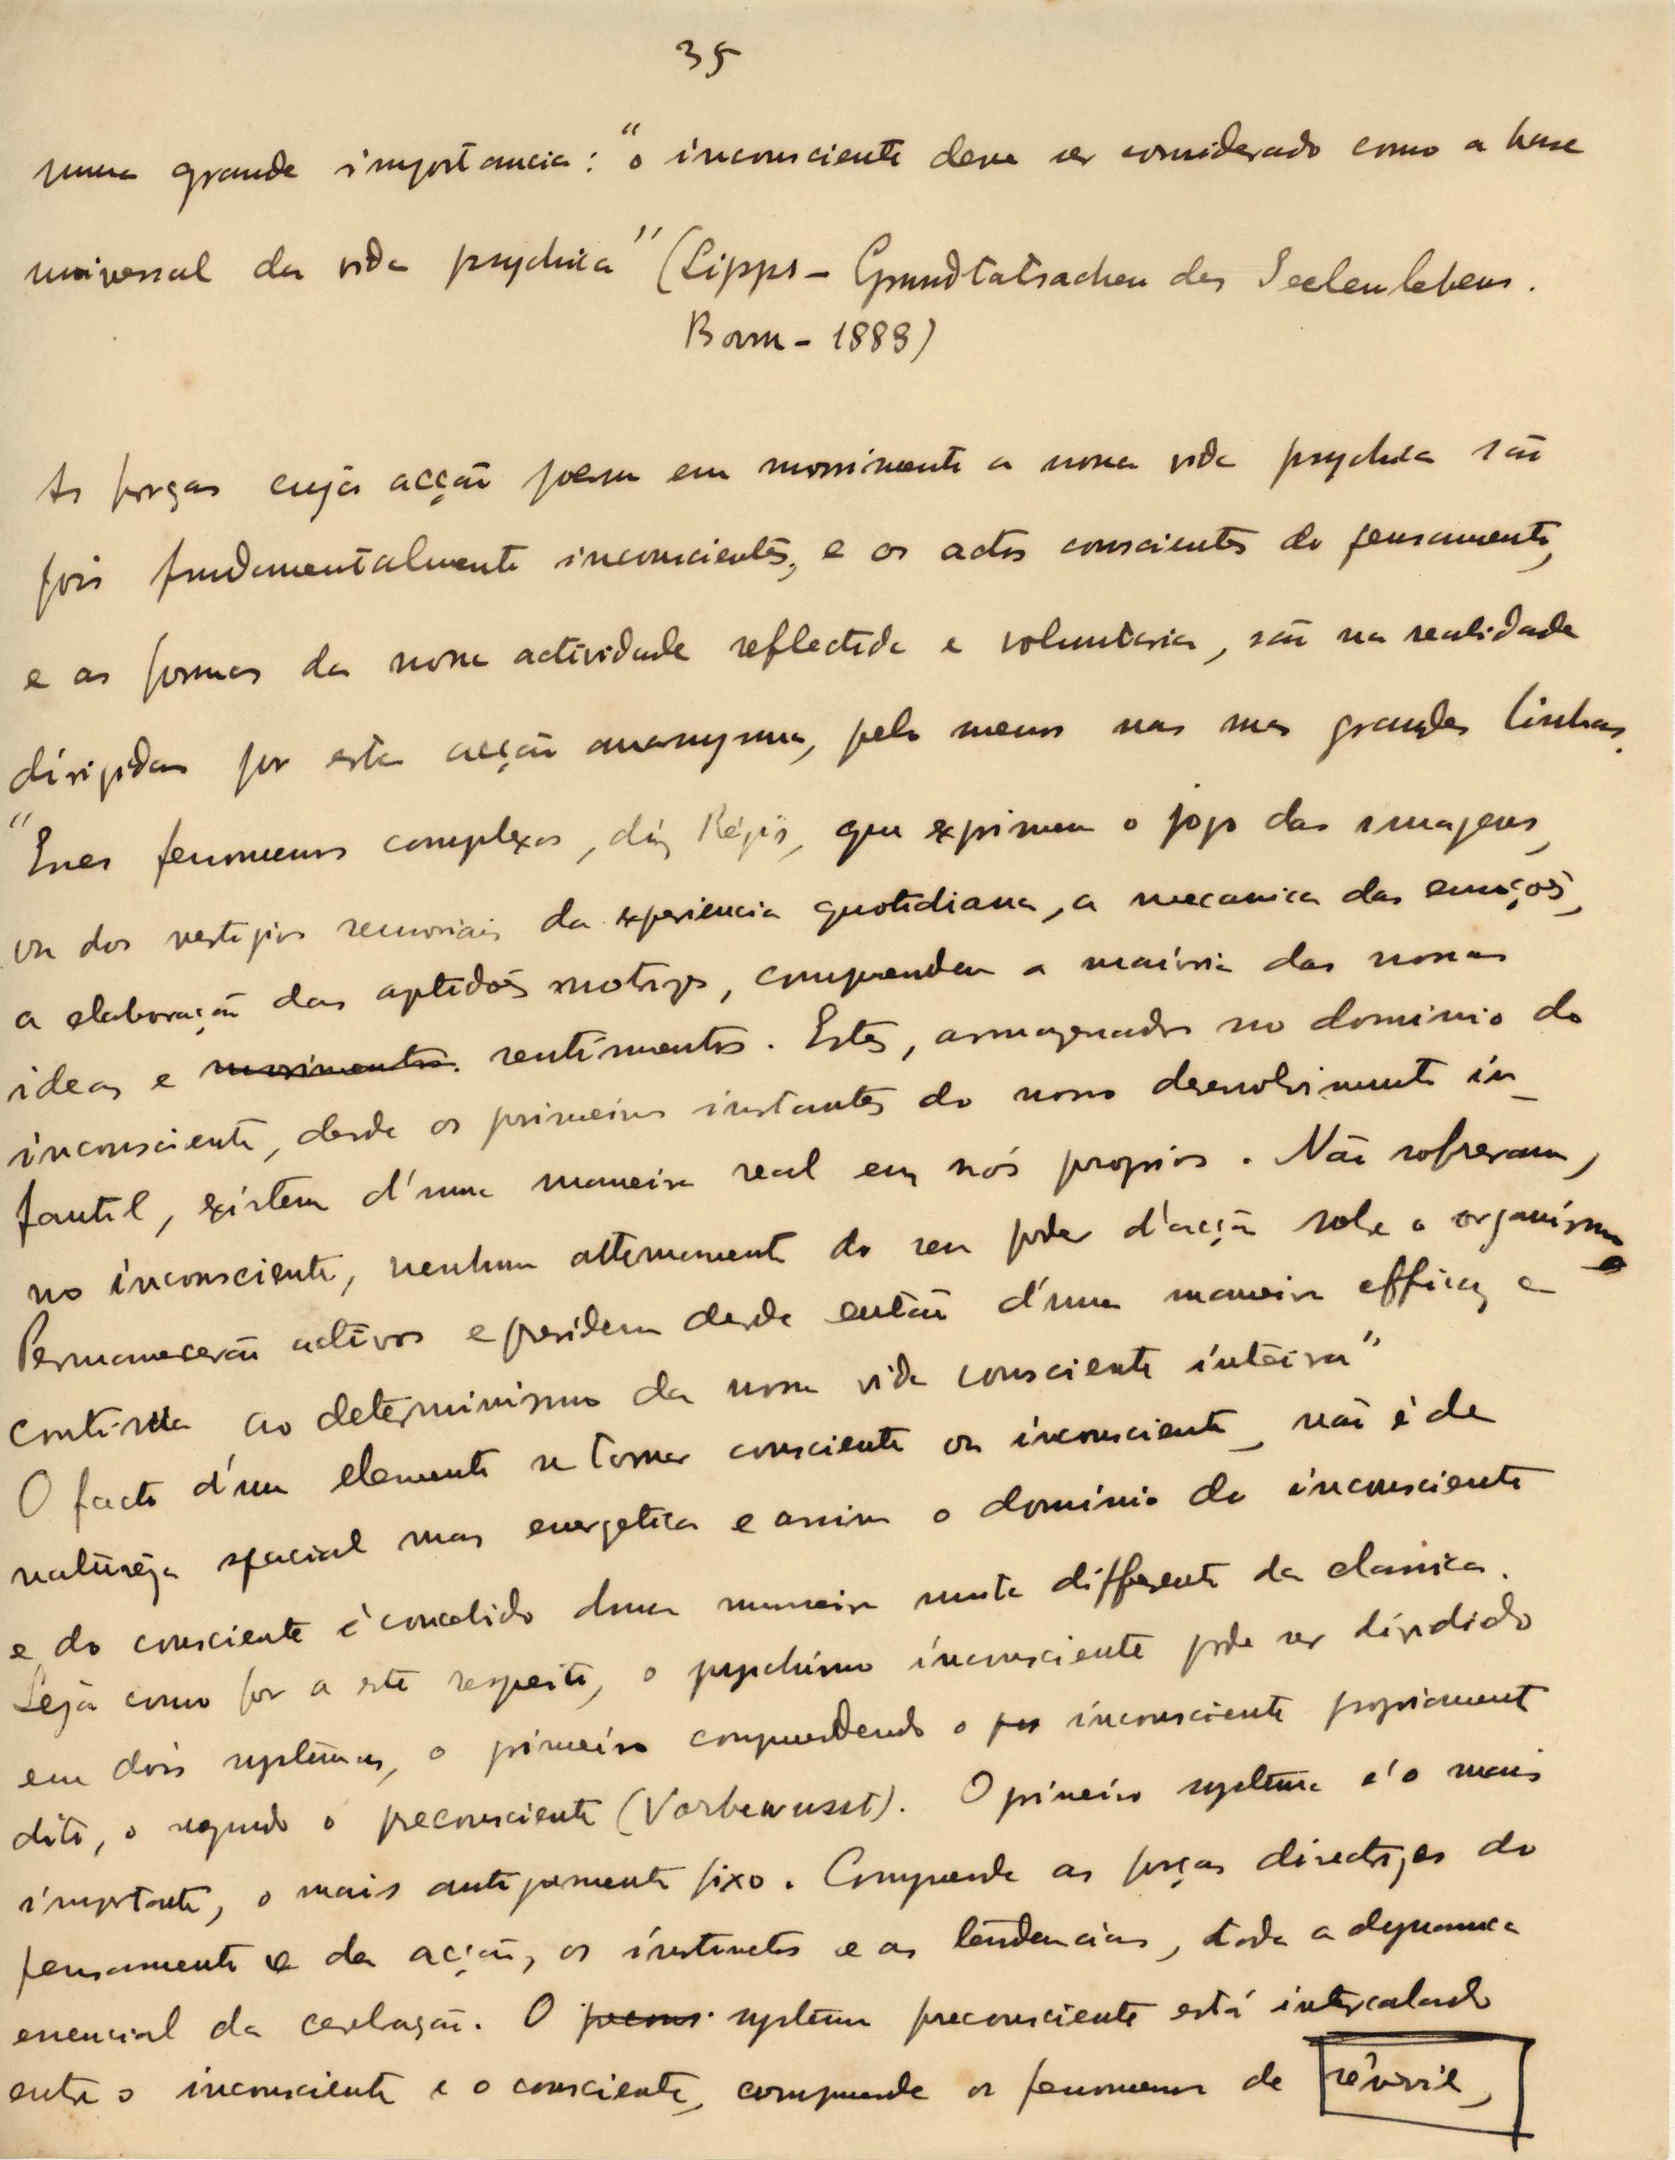 35
numa grande importancia: "o inconsciente deve ser considerado como a base
universal da vida psychica" (Lipps - Grundtatsachen des Seelenlebens.
Bonn - 1883)
As forças cuja acção poem em movimento a nossa vida psychica são
pois fundamentalmente inconscientes, e os actos conscientes do pensamento,
e as formas da nossa actividade reflectida e voluntaria, são na realidade
dirigidas por esta acção anonyma, pelo menos nas suas grandes linhas.
"Esses fenomenos complexos, diz Régis, que exprimem o jogo das imagens,
ou dos vestigios sensoriais da experiencia quotidiana, a mecanica das emoções,
a elaboração das aptidões motrizes, comprendem a maioria das nossas
ideas e movimentos. sentimentos. Estes, armazenados no dominio do
inconsciente, desde os primeiros instantes do nosso desenvolvimento in-
fantil, existem d'uma maneira real em nós proprios. Não sofreram,
no inconsciente, nenhum attenuamento do seu poder d'acção sobre o organismo
Permanecerão activos e presidem desde então d'uma maneira efficaz e
continua ao determinismo da nossa vida consciente inteira"
O facto d'um elemento se tornar consciente ou inconsciente, não é de
natureza spacial mas energetica e assim o dominio do inconsciente
e do consciente é concebido duma maneira muito differente da classica.
Seja como for a este respeito, o psychismo inconsciente pode ser dividido
em dois systemas, o primeiro comprendendo o pro inconsciente propriamente
dito, o segundo o preconsciente (Vorbewusst). O primeiro systema é o mais
importante, o mais antigamente fixo. Comprende as forças directrizes do
pensamento e da acção, os instinctos e as tendencias, toda a dynamica
essencial da cerebração. O precons. systema preconsciente está intercalado
entre o inconsciente e o consciente, comprende os fenomenos de rêverie,